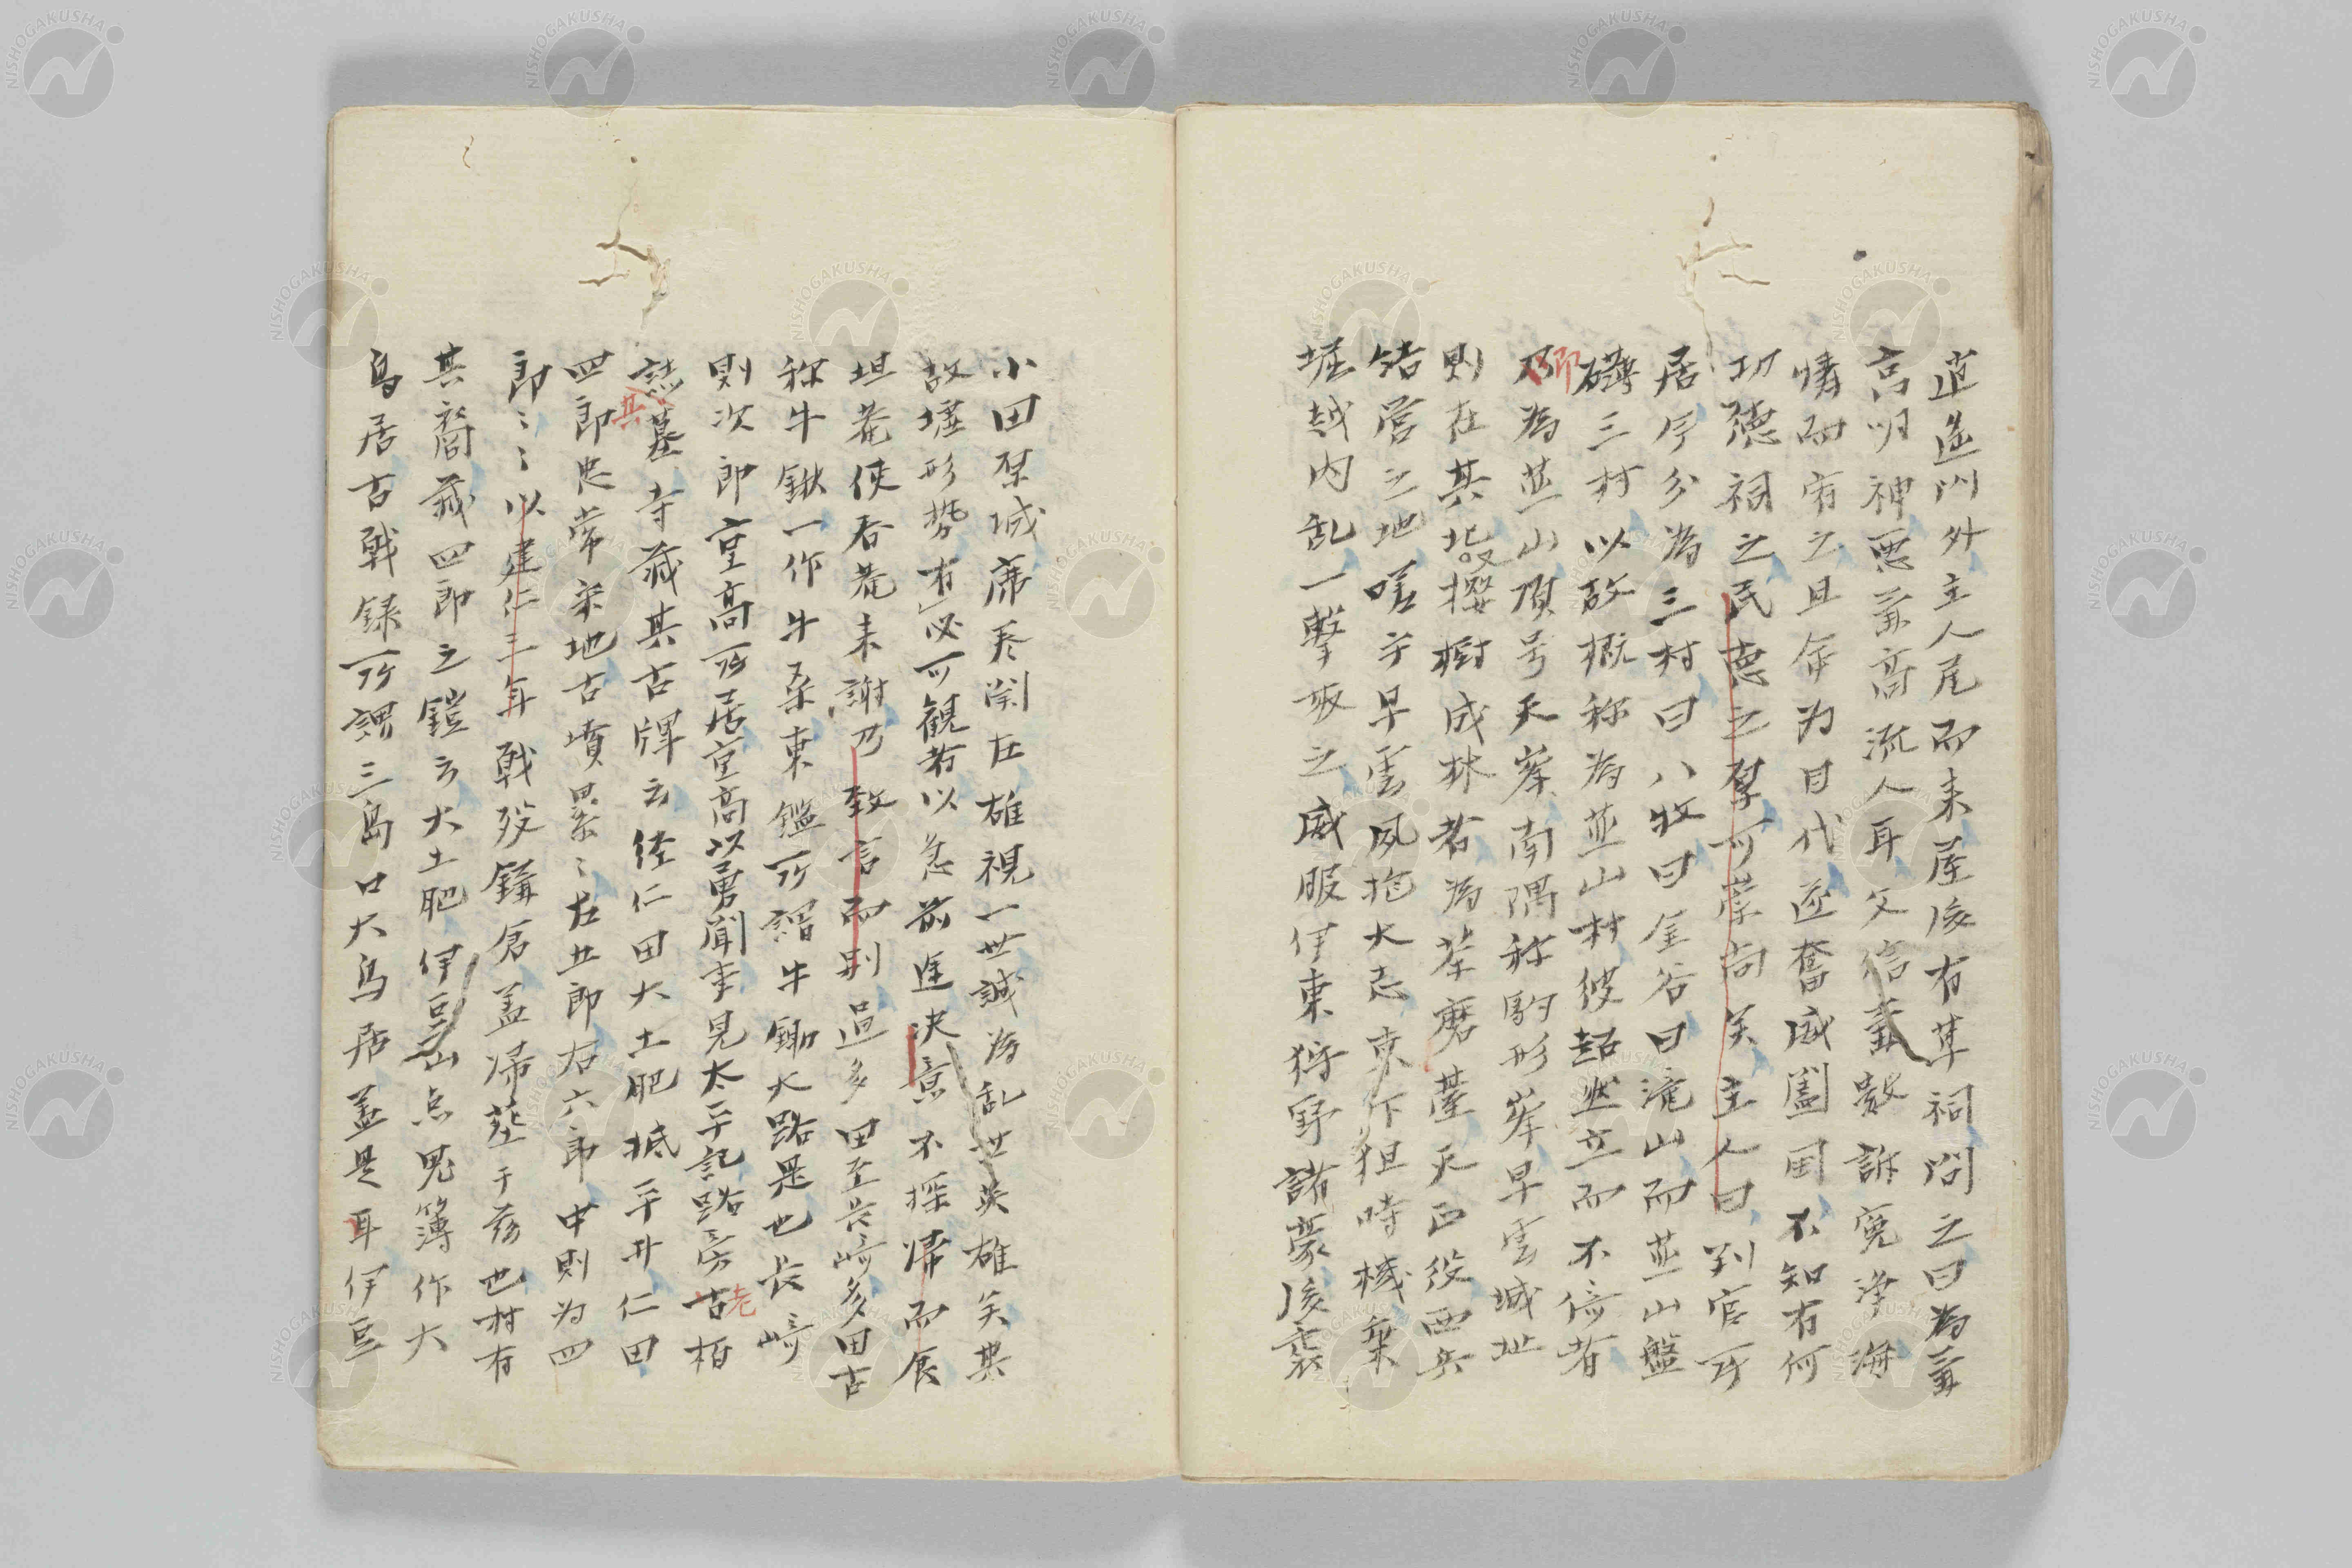 逍遥門外主人尾而来屋後有草祠問之曰為兼
高明神悪兼高流人耳父信兼数訴寃浄海
慵而宥之且命为目代逐奮威闔国不知有何
功徳祠之民徳之厚可崇尚矣主人曰判官所
居今分為三村曰八牧曰金谷曰滝山而韮山盤
礴三村以故概称為韮山村彼超然立而不倚者
乃即為韮山頂号天峯南隅称駒形峯早雲城址
則在其北段撥樹成林者為茶磨䑓天正役西兵
結営之地嗟乎早雲夙抱大志東下狙時機乗
堀越内乱一撃取之威服伊東狩野諸豪後襲
小田原城席巻関左雄視一世誠為乱世英雄矣其
故墟形勢有必可観者以急前途决意不探帰而食
坦菴使吞菴来謝乃致言而別過多田至長﨑多田古
称牛鍬一作牛桑東鑑所謂牛鋤大路是也長﨑
則次郎重高所居重高以勇聞事見太平記路旁古老栢
誌其墓寺蔵其古牌云経仁田大土肥抵平井仁田
四郎忠常采地古墳累〻左五郎右六郎中則为四
郎〻〻以建仁三年戦歿鎌倉盖帰葬于茲也村有
其裔蔵四郎之鎧云大土肥伊豆山点鬼簿作大
鳥居古戦録所謂三島口大鳥居盖是耳伊豆